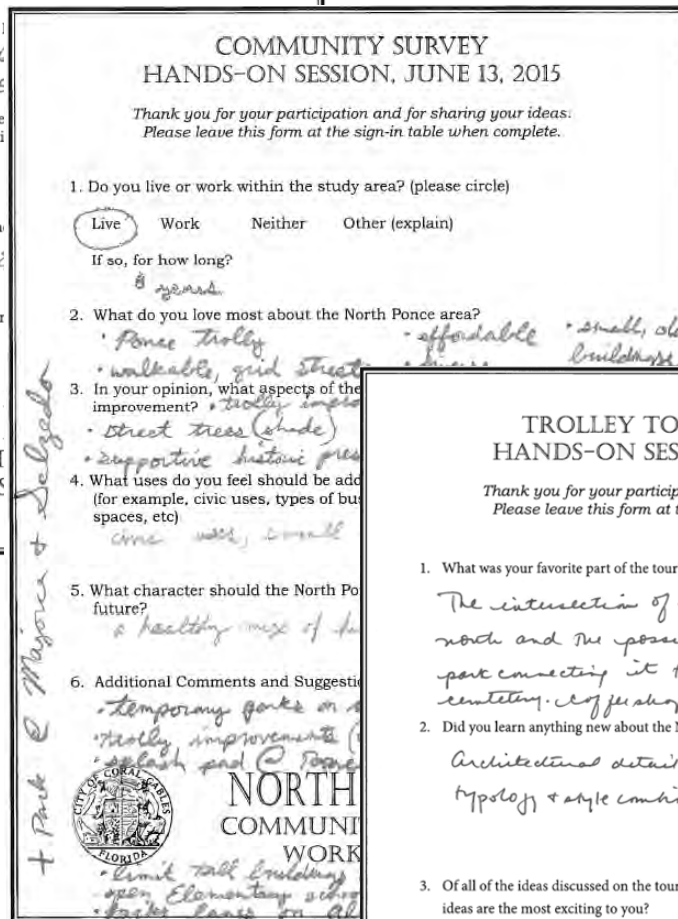 COMMUNITY SURVEY
HANDS-ON SESSION, JUNE 13, 2015
Thank you for your participation and for sharing your ideas.
Please leave this form at the sign-in table when complete.
1. Do you live or work within the study area? (please circle)
Live Work Neither Other (explain)
If so, for how long?
8 years
2. What do you love most about the North Ponce area?
• Ponce trolly • affordable • small, old
• walkable, grid streets buildings
3. In your opinion, what aspects of the
improvement? • trolly impro
• street trees (shade)
• supportive historic pres
4. What uses do you feel should be add
(for example, civic uses, types of bu
spaces, etc)
civic uses, small
5. What character should the North Po
future?
a healthy mix of
6. Additional Comments and Suggesti
• temporary parks on
• trolly improvements
• splash pad @
+ Park @ Majorca + Salzedo
CITY OF CORAL GABLES
FLORIDA
NORTH
COMMUNI
WORK
• limit tall buildings
• open Elementary school
TROLLEY TO
HANDS-ON SES
Thank you for your particip
Please leave this form at t
1. What was your favorite part of the tour
The intersection of
north and the possi
park connecting it t
cemtetery. coffee shop
2. Did you learn anything new about the N
Architectural detail
typology + style combi
3. Of all of the ideas discussed on the tour
ideas are the most exciting to you?